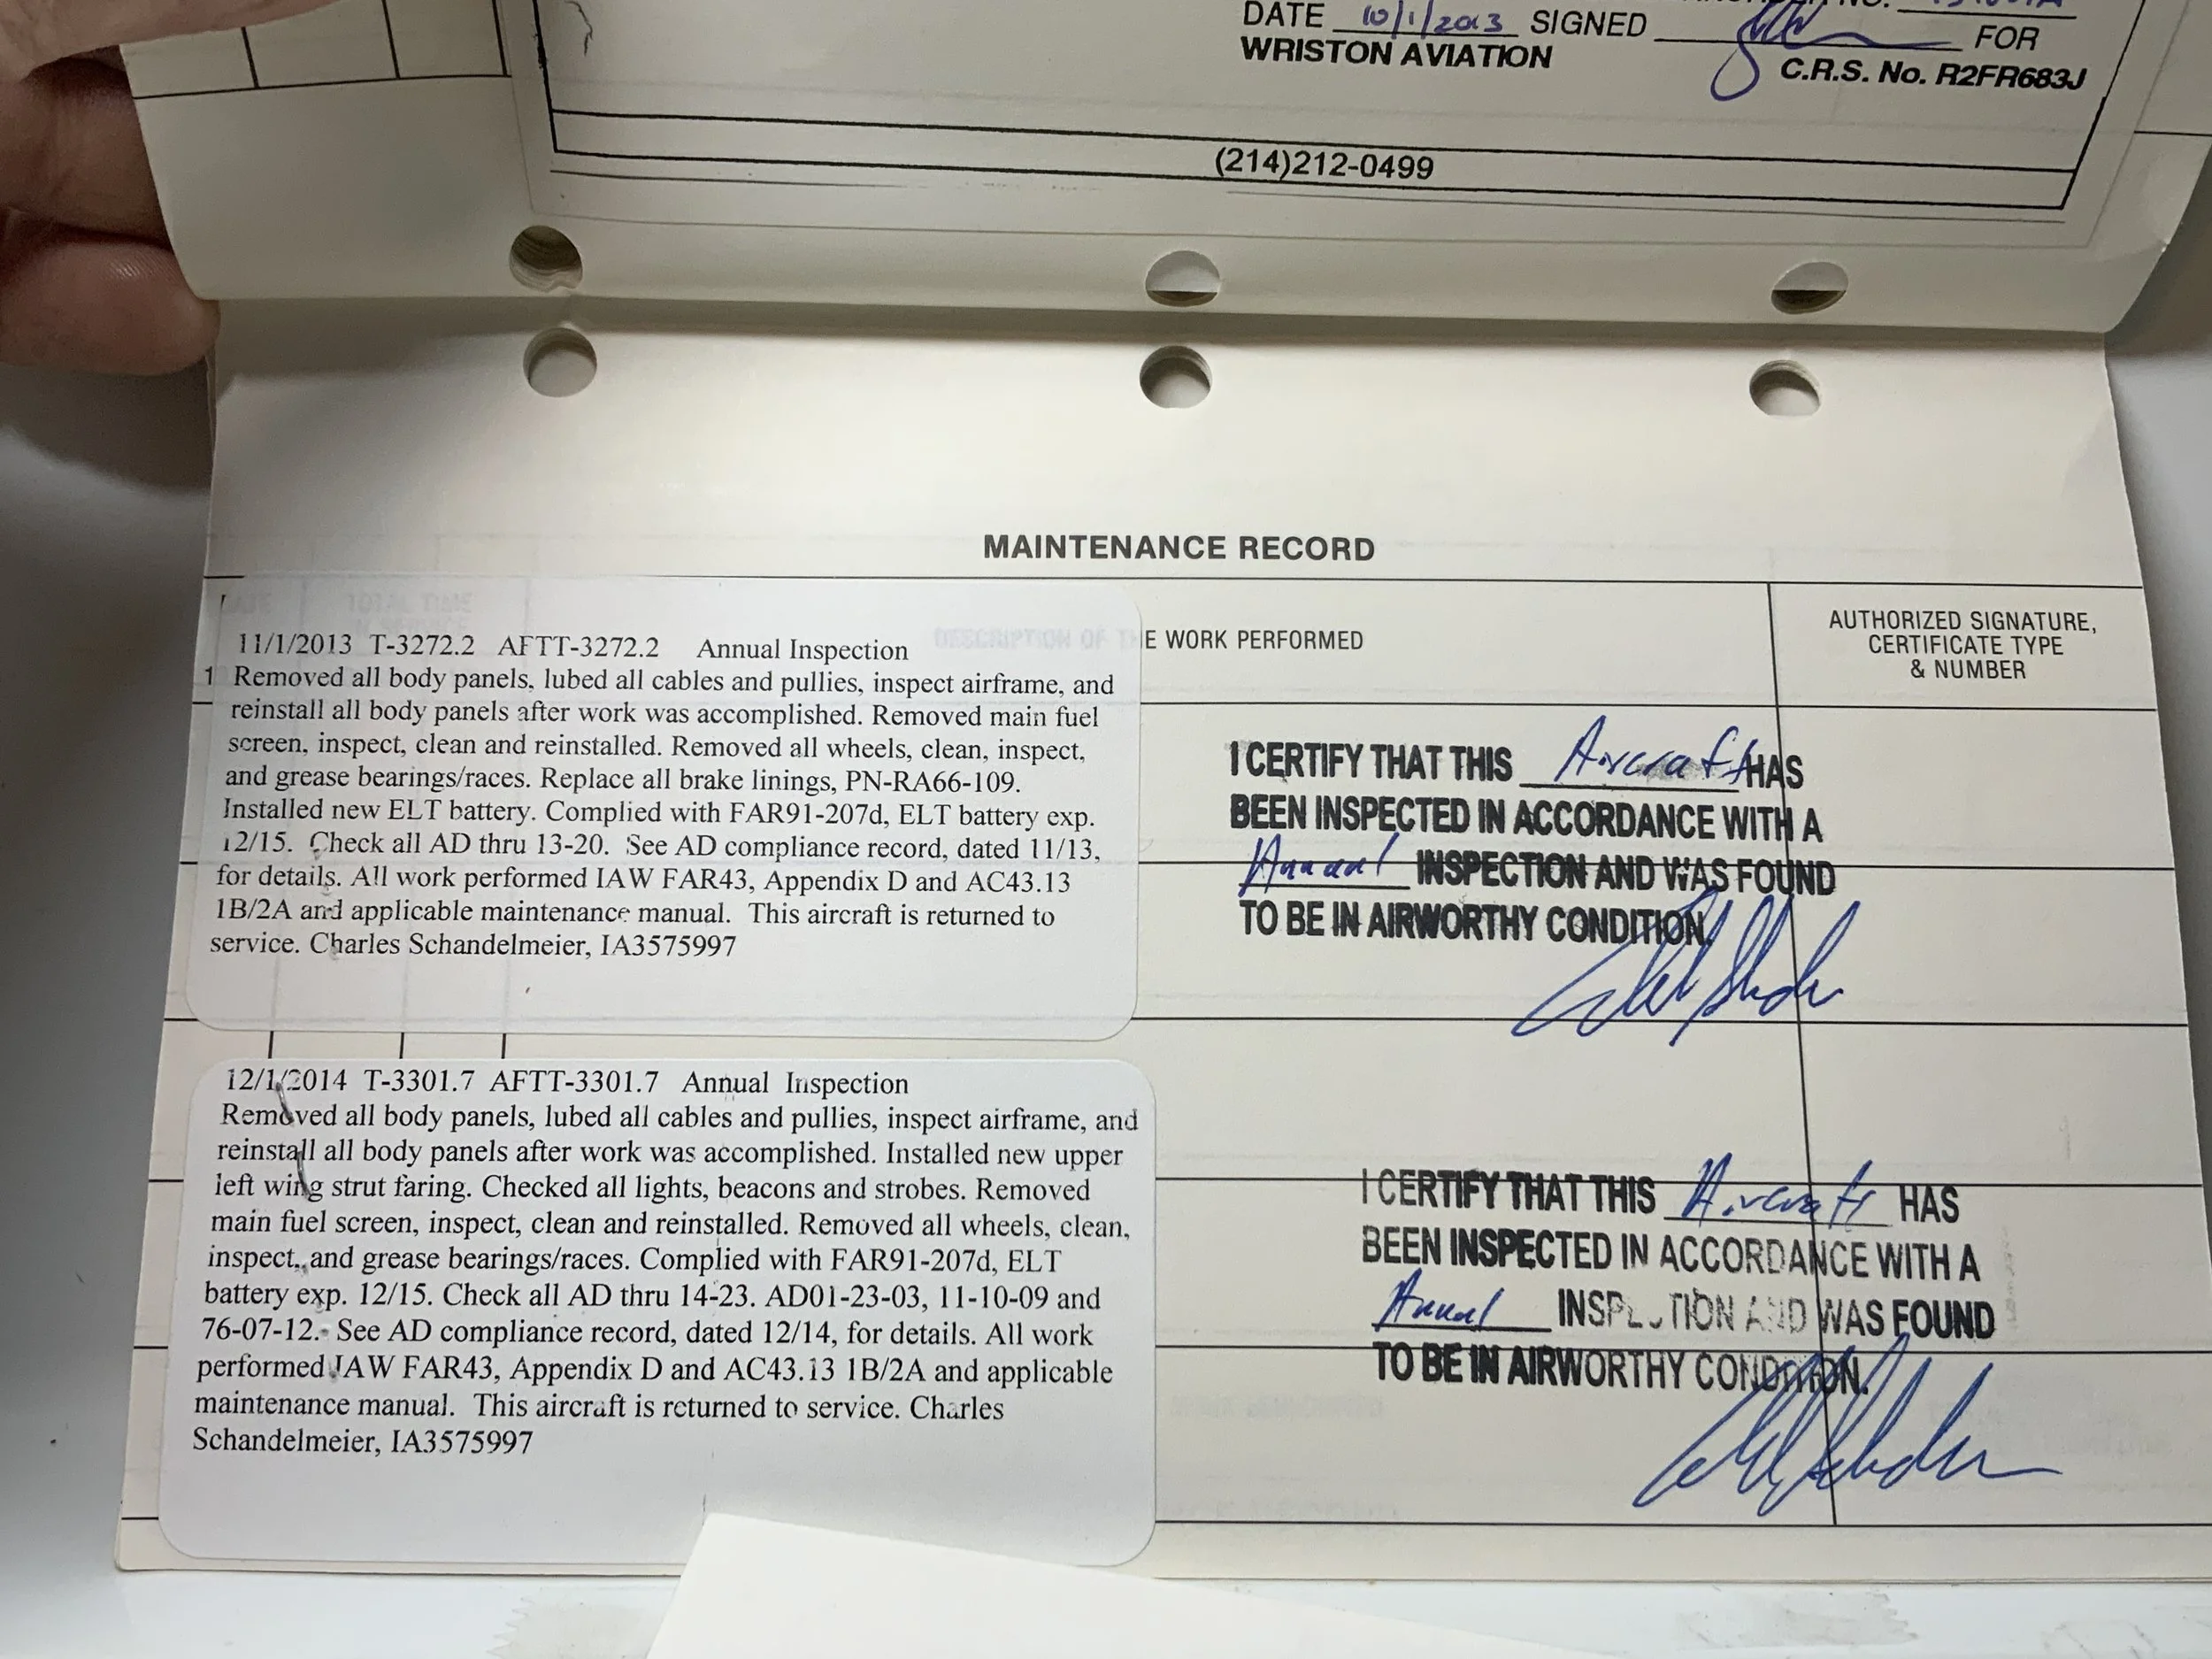 DATE 10/1/2013 SIGNED FOR
WRISTON AVIATION C.R.S. No. R2FR683J
(214)212-0499
MAINTENANCE RECORD
DATE TOTAL TIME IN SERVICE DESCRIPTION OF THE WORK PERFORMED
AUTHORIZED SIGNATURE,
CERTIFICATE TYPE
& NUMBER
11/1/2013 T-3272.2 AFTT-3272.2 Annual Inspection
1 Removed all body panels, lubed all cables and pullies, inspect airframe, and
reinstall all body panels after work was accomplished. Removed main fuel
screen, inspect, clean and reinstalled. Removed all wheels, clean, inspect,
and grease bearings/races. Replace all brake linings, PN-RA66-109.
Installed new ELT battery. Complied with FAR91-207d, ELT battery exp.
12/15. Check all AD thru 13-20. See AD compliance record, dated 11/13,
for details. All work performed IAW FAR43, Appendix D and AC43.13
1B/2A and applicable maintenance manual. This aircraft is returned to
service. Charles Schandelmeier, IA3575997
I CERTIFY THAT THIS Aircraft HAS
BEEN INSPECTED IN ACCORDANCE WITH A
Annual INSPECTION AND WAS FOUND
TO BE IN AIRWORTHY CONDITION.
12/1/2014 T-3301.7 AFTT-3301.7 Annual Inspection
Removed all body panels, lubed all cables and pullies, inspect airframe, and
reinstall all body panels after work was accomplished. Installed new upper
left wing strut faring. Checked all lights, beacons and strobes. Removed
main fuel screen, inspect, clean and reinstalled. Removed all wheels, clean,
inspect, and grease bearings/races. Complied with FAR91-207d, ELT
battery exp. 12/15. Check all AD thru 14-23. AD01-23-03, 11-10-09 and
76-07-12. See AD compliance record, dated 12/14, for details. All work
performed IAW FAR43, Appendix D and AC43.13 1B/2A and applicable
maintenance manual. This aircraft is returned to service. Charles
Schandelmeier, IA3575997
I CERTIFY THAT THIS Aircraft HAS
BEEN INSPECTED IN ACCORDANCE WITH A
Annual INSPECTION AND WAS FOUND
TO BE IN AIRWORTHY CONDITION.